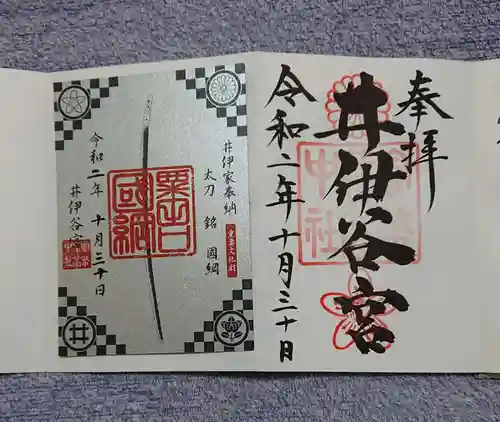 奉拝
井伊谷宮
令和二年十月三十日
井伊家奉納
太刀 銘 國綱
重要文化財
粟田口
國綱
令和二年 十月三十日
井伊谷宮